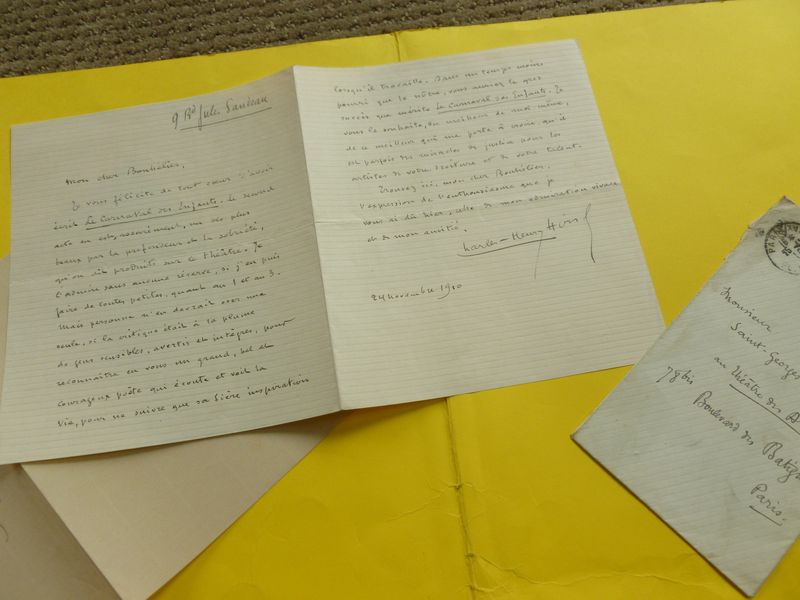 9 Bd Jules Sandeau
Mon cher Bouhélier,
Je vous félicite de tout cœur d'avoir
écrit Le Carnaval des Enfants. Le second
acte en est, assurément, un des plus
beaux par la profondeur et la sobriété,
qu'on ait produits sur ce théâtre. Je
l'admire sans aucune réserve, si j'en puis
faire de toutes petites, quant au 1 et au 3.
Mais personne n'en devrait oser une
seule, si la critique était à la plume
de gens sensibles, avertis et intègres, pour
reconnaître en vous un grand, bel et
courageux poète qui écoute et voit la
vie, pour ne suivre que sa fière inspiration
lorsqu'il travaille. Dans un temps moins
pourri que le nôtre, vous auriez le gros
succès que mérite Le Carnaval des Enfants. Je
vous le souhaite, du meilleur de moi-même,
de ce meilleur qui me porte à croire qu'il
est parfois des miracles de justice pour les
artistes de votre droiture et de votre talent.
Trouvez ici, mon cher Bouhélier,
l'expression de l'enthousiasme que je
vous ai dû hier, celle de mon admiration vivace
et de mon amitié.
Charles-Henry Hirsch
24 novembre 1910
Monsieur
Saint-Georges
au Théâtre des
78 bis
Boulevard des
Paris